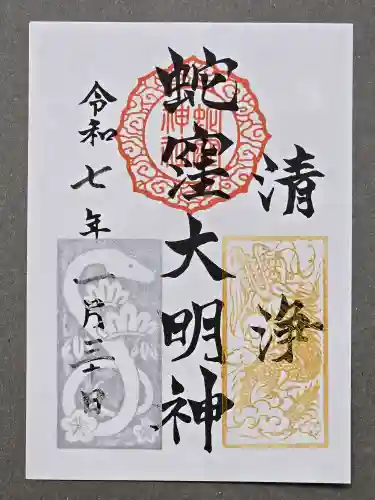 清浄
蛇窪大明神
令和七年一月三十日